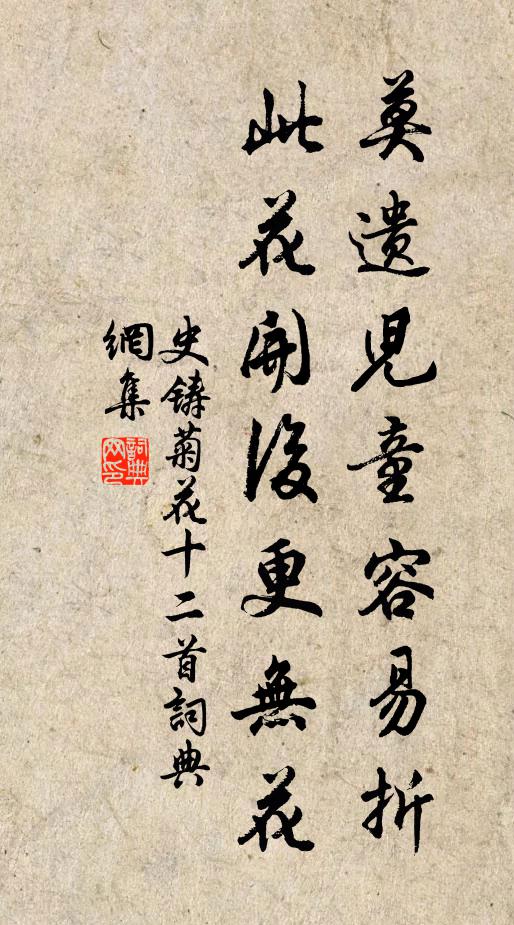 莫遺児童容易折
此花開後更無花
史鋳菊花十二首詞典
網集
詞典
网印